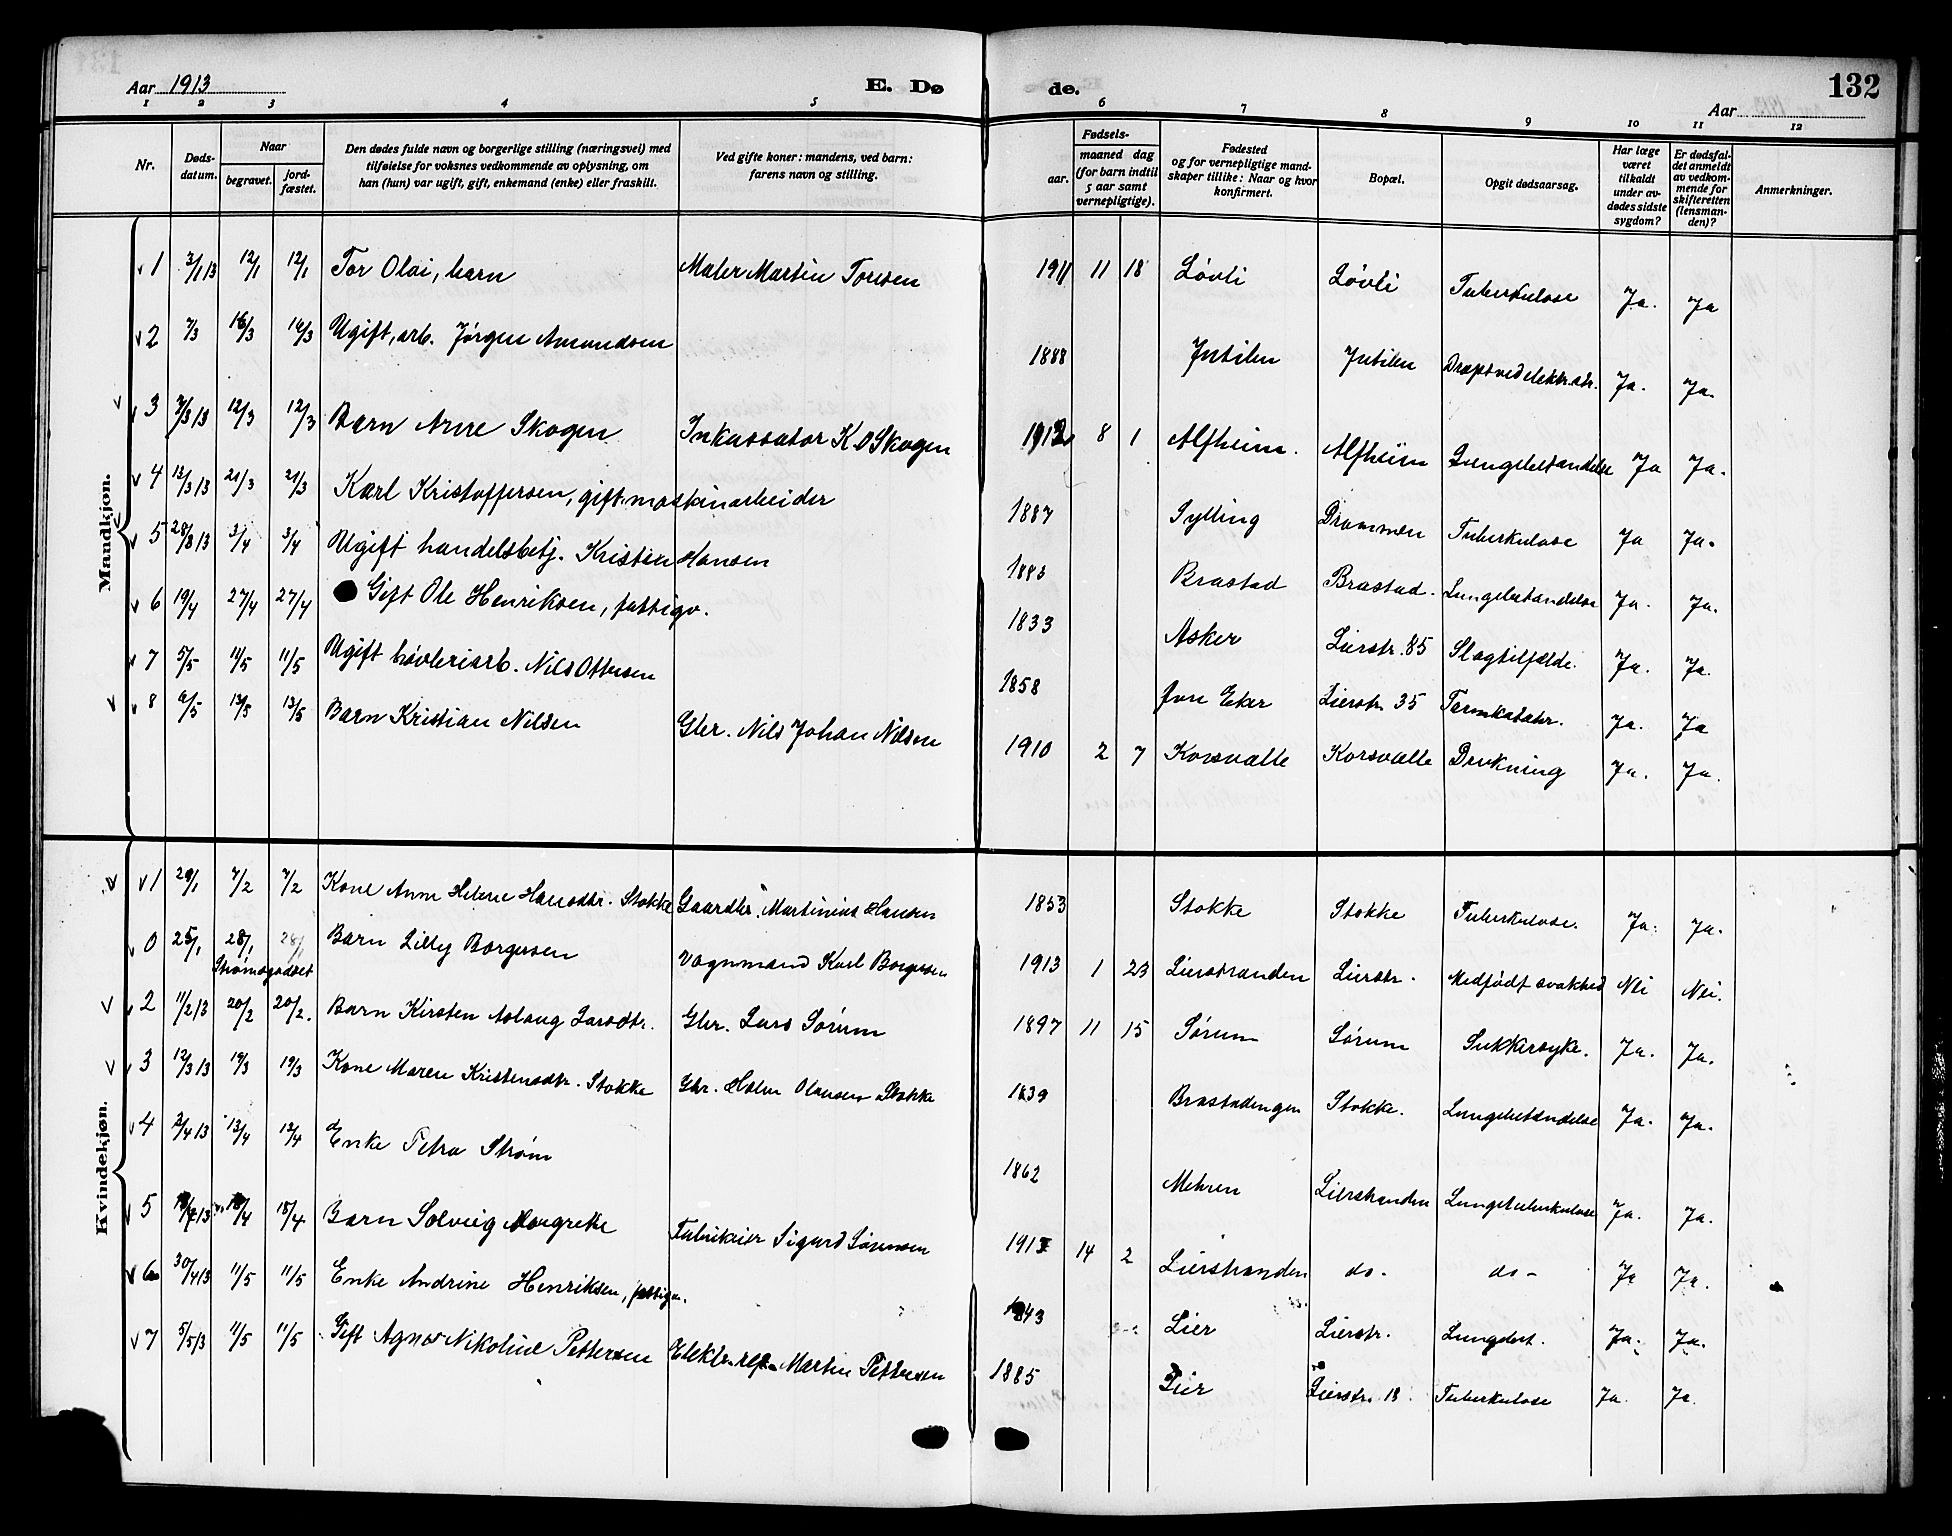 Aar 1913 E. Døde. Aar 132
1 2 3 4 5 6 7 8 9 10 11 12
Nr. Døds-datum. Naar begravet. jord-fæstet. Den dødes fulde navn og borgerlige stilling (næringsvei) med tilføielse for voksnes vedkommende av oplysning, om han (hun) var ugift, gift, enkemand (enke) eller fraskilt. Ved gifte koner: mandens, ved barn: farens navn og stilling. Fødsels- aar. maaned dag (for barn indtil 5 aar samt vernepligtige). Fødested og for vernepligtige mandskaper tillike: Naar og hvor konfirmert. Bopæl. Opgit dødsaarsag. Har læge været tilkaldt under avdødes sidste sygdom? Er dødsfaldet anmeldt av vedkommende for skifteretten (lensmanden)? Anmerkninger.
Mandkjøn.
1 3/1 13 12/1 12/1 Tor Olai, barn Maler Martin Toresen 1911 11 18 Løvli Løvli Tuberkulose Ja. Ja
2 7/3 16/3 16/3 Ugift, arb. Jørgen Amundsen 1888 Intilen Intilen Dræpt ved elektr. str. Ja. Ja.
3 7/3 13 12/3 12/3 Barn Arne Skogen Inkassator K. O Skogen 1912 8 1 Alfheim. Alfheim Lungebetændelse Ja Ja.
4 13/3 13 21/3 21/3 Karl Kristoffersen, gift, maskinarbeider 1887 Sylling Drammen Tuberkulose Ja Ja.
5 28/3 13 3/4 3/4 Ugift handelsbetj. Kristian Hansen Brastad Brastad. Lungebetændelse Ja. Ja.
6 19/4 27/4 27/4 Gift Ole Henriksen, fattigv. 1833 Asker Lierstr. 85 Slagtilfælde. Ja. Ja.
7 5/5 11/5 11/5 Ugift høvleriarb. Nils Ottersen 1858 Øvre Eker Lierstr. 35 Tarmkatahr. Ja. Ja
8 6/5 13/5 13/5 Barn Kristian Nilsen Gbr. Nils Johan Nilsen 1910 2 7 Korsvalle Korsvalle Drukning Ja. Ja.
Kvindekjøn.
1 29/1 7/2 7/2 Kone Anne Helene Hansdtr. Stokke Gaardbr. Martinius Hansen 1853 Stokke Stokke Tuberkulose. Ja. Ja.
0 25/1 28/1 28/1 Barn Lilly Borgersen Vognmand Karl Borgersen 1913 1 23 Lierstranden Lierstr. Medfødt svakhed Nei Nei.
Strømsgodset
2 11/2 13 20/2 20/2. Barn Kirsten Aslaug Larsdtr. Gbr. Lars Sørum 1897 11 15 Sørum Sørum Sukkersyke. Ja. Ja.
3 12/3 13 19/3 19/3 Kone Maren Kristensdtr. Stokke Gbr. Olausen Stokke 1839 Brastadengen Stokke. Lungebetændelse Ja. Ja.
4 2/4 13 13/4 13/4 Enke Petra Strøm 1862 Mehren Lierstranden Lungetuberkulose Ja. Ja.
5 13 18/4 18/4 Barn Solveig Margrethe Fabrikeier Sigurd Sørensen 14 2 Lierstranden do. do. Ja Ja.
6 30/4 13 11/5 11/5 Enke Andrine Henriksen, fattigv. 1843 Lier Lierstr. Lungebet. Ja. Ja.
7 5/5 13 11/5 11/5 Gift Agnes Nikoline Pettersen Elektr. rep. Martin Pettersen 1885 Lier Lierstr. 18. Tuberkulose Ja. Ja.